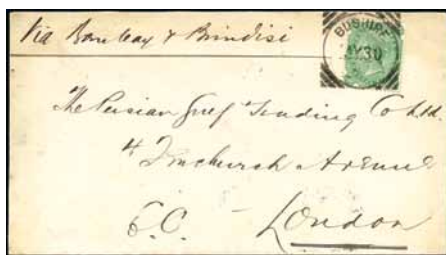 Via Bombay & Brindisi
BUSHIRE
MY30
The Persian Gulf Trading Co Ltd.
4 Fenchurch Avenue
E.C.
London